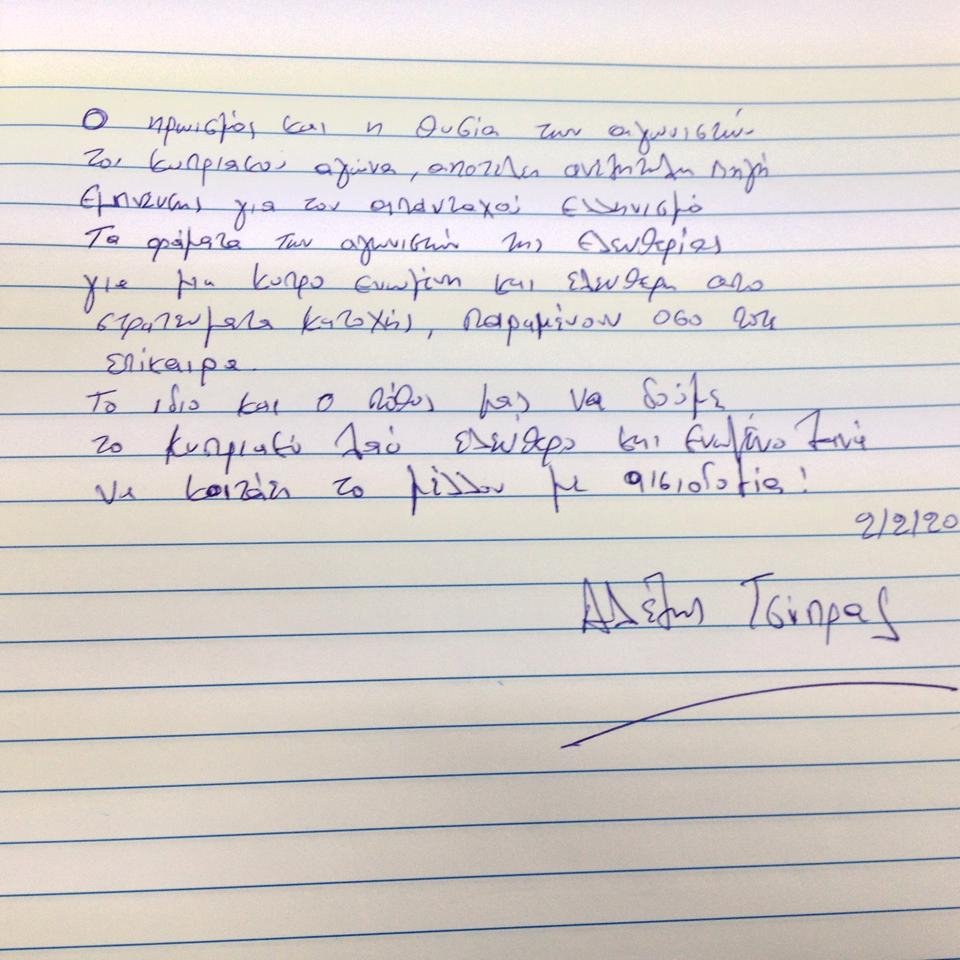 Ο ηρωισμός και η θυσία των αγωνιστών
του κυπριακου αγώνα, αποτελει ανεξαντλητη πηγή
εμπνευσης για τον απανταχού ελληνισμό
Τα οράματα των αγωνιστών της ελευθερίας
για μια κυπρο ενωμένη και ελευθερη απο
στρατευματα κατοχής, παραμένουν οσο ποτέ
επίκαιρα.
Το ιδιο και ο πόθος μας να δούμε
το κυπριακό λαό ελεύθερο και ενωμένο ξανά
να κοιτάει το μέλλον με αισιοδοξία!
2/2/20
Αλέξης Τσίπρας